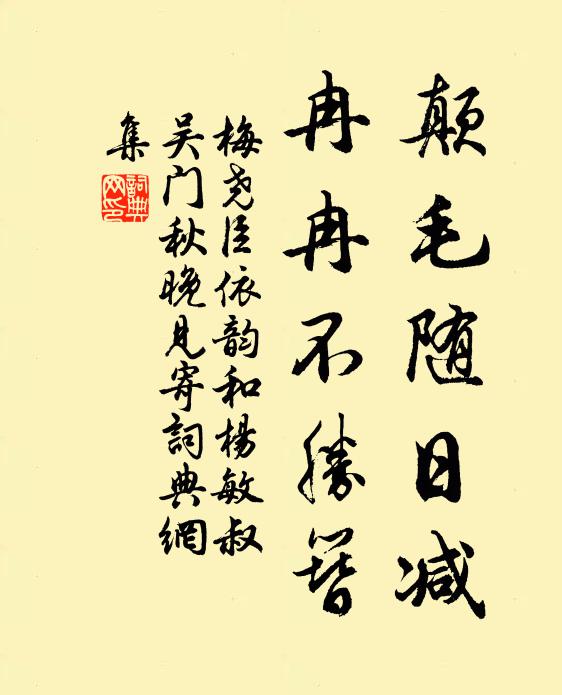 颠毛随日减
冉冉不勝簪
梅尧臣依韵和杨敏叔
吴门秋晚见寄詞典網
集
詞典網印